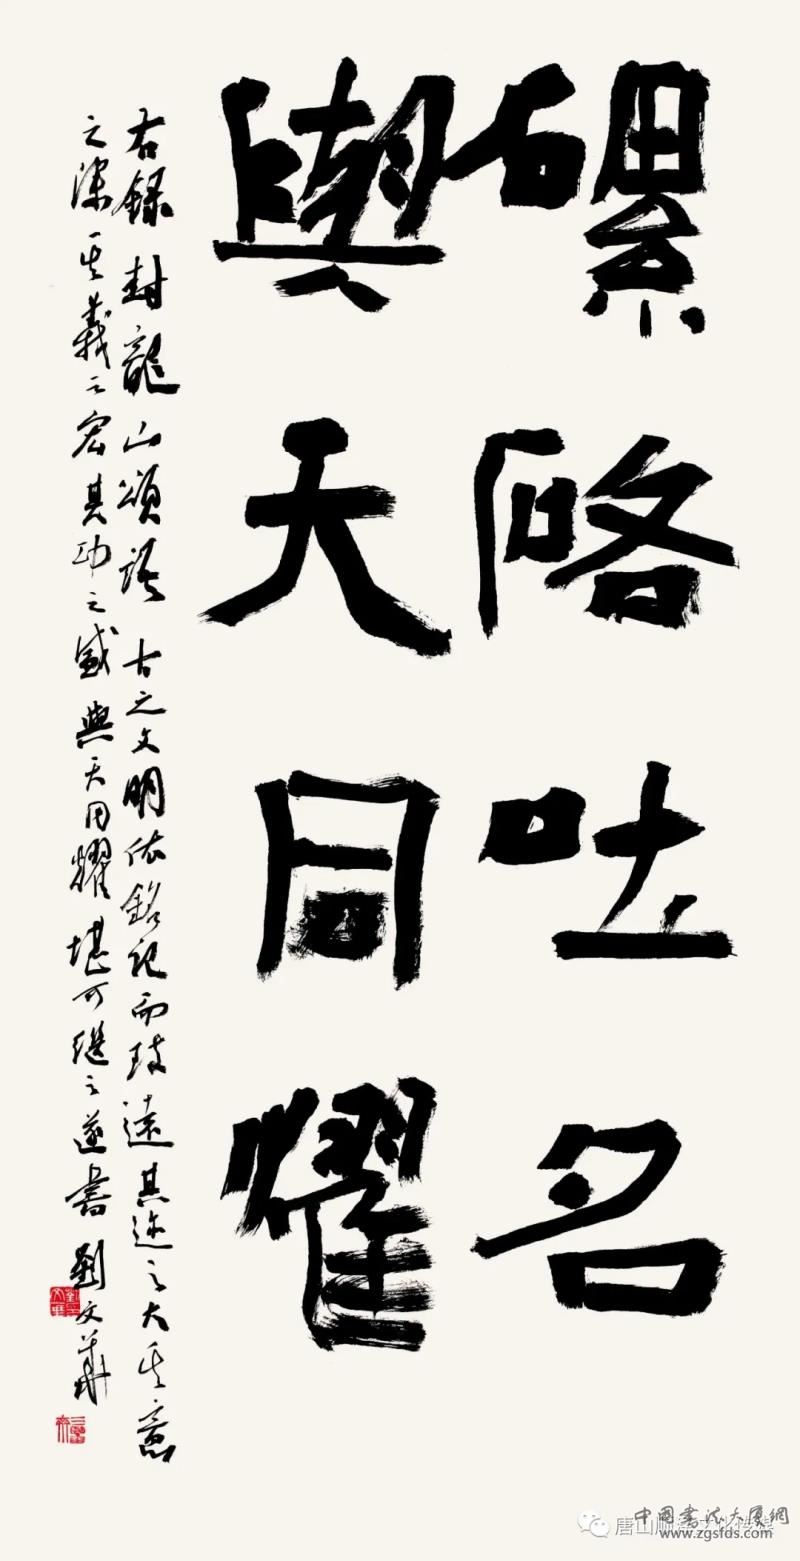 磥硌吐名
與天同燿
右錄封龍山頌語古之文明依銘記而致遠其迹之大其意
之深其義之宏其功之盛與天同耀堪可繼之遂書劉文華
中國書法大厦網
唐山
www.zgsfds.com